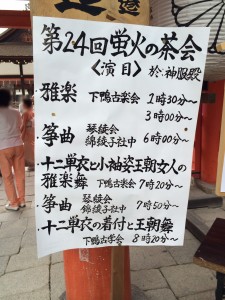 第24回蛍火の茶会
〈演目〉 於:神服殿
雅楽 下鴨古楽会 1時30分〜
3時00分〜
・箏曲 琴綾会
錦綾子社中 6時00分〜
・十二単衣と小袖姿王朝女人の
雅楽舞 下鴨古楽会 7時20分〜
・箏曲 琴綾会
錦綾子社中 7時50分〜
・十二単衣の着付と王朝舞
下鴨古楽会 8時20分〜